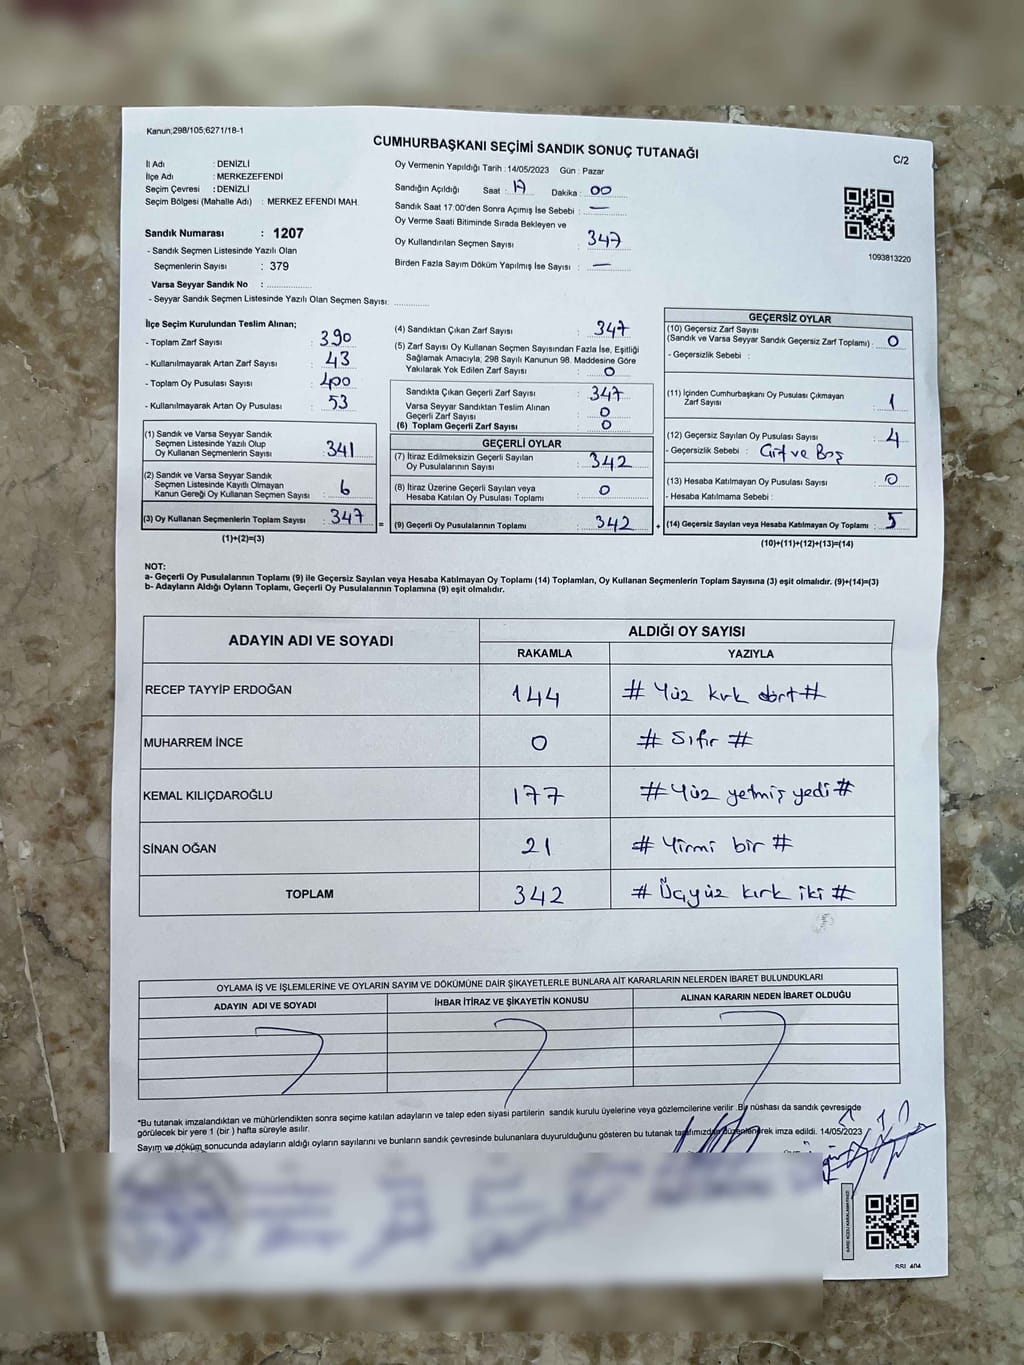 Kanun;298/105;6271/18-1
CUMHURBAŞKANI SEÇİMİ SANDIK SONUÇ TUTANAĞI
C/2
İl Adı : DENİZLİ
İlçe Adı : MERKEZEFENDİ
Seçim Çevresi : DENİZLİ
Seçim Bölgesi (Mahalle Adı) : MERKEZ EFENDİ MAH.
Sandık Numarası : 1207
- Sandık Seçmen Listesinde Yazılı Olan
Seçmenlerin Sayısı : 379
Varsa Seyyar Sandık No :
- Seyyar Sandık Seçmen Listesinde Yazılı Olan Seçmen Sayısı:
Oy Vermenin Yapıldığı Tarih : 14/05/2023 Gün : Pazar
Sandığın Açıldığı Saat : 17 Dakika : 00
Sandık Saat 17.00'den Sonra Açımış İse Sebebi : —
Oy Verme Saati Bitiminde Sırada Bekleyen ve
Oy Kullandırılan Seçmen Sayısı : 347
Birden Fazla Sayım Döküm Yapılmış İse Sayısı : —
1093813220
İlçe Seçim Kurulundan Teslim Alınan;
- Toplam Zarf Sayısı : 390
- Kullanılmayarak Artan Zarf Sayısı : 43
- Toplam Oy Pusulası Sayısı : 400
- Kullanılmayarak Artan Oy Pusulası : 53
(1) Sandık ve Varsa Seyyar Sandık
Seçmen Listesinde Yazılı Olup
Oy Kullanan Seçmenlerin Sayısı : 341
(2) Sandık ve Varsa Seyyar Sandık
Seçmen Listesinde Kayıtlı Olmayan
Kanun Gereği Oy Kullanan Seçmen Sayısı : 6
(3) Oy Kullanan Seçmenlerin Toplam Sayısı : 347
(1)+(2)=(3)
(4) Sandıktan Çıkan Zarf Sayısı : 347
(5) Zarf Sayısı Oy Kullanan Seçmen Sayısından Fazla İse, Eşitliği
Sağlamak Amacıyla, 298 Sayılı Kanunun 98. Maddesine Göre
Yakılarak Yok Edilen Zarf Sayısı : 0
Sandıkta Çıkan Geçerli Zarf Sayısı : 347
Varsa Seyyar Sandıktan Teslim Alınan
Geçerli Zarf Sayısı : 0
(6) Toplam Geçerli Zarf Sayısı : 0
GEÇERLİ OYLAR
(7) İtiraz Edilmeksizin Geçerli Sayılan
Oy Pusulalarının Sayısı : 342
(8) İtiraz Üzerine Geçerli Sayılan veya
Hesaba Katılan Oy Pusulası Toplamı : 0
= (9) Geçerli Oy Pusulalarının Toplamı : 342 +
GEÇERSİZ OYLAR
(10) Geçersiz Zarf Sayısı
(Sandık ve Varsa Seyyar Sandık Geçersiz Zarf Toplamı) : 0
- Geçersizlik Sebebi :
(11) İçinden Cumhurbaşkanı Oy Pusulası Çıkmayan
Zarf Sayısı : 1
(12) Geçersiz Sayılan Oy Pusulası Sayısı : 4
- Geçersizlik Sebebi : Çift ve Boş
(13) Hesaba Katılmayan Oy Pusulası Sayısı : 0
- Hesaba Katılmama Sebebi :
(14) Geçersiz Sayılan veya Hesaba Katılmayan Oy Toplamı : 5
(10)+(11)+(12)+(13)=(14)
NOT:
a- Geçerli Oy Pusulalarının Toplamı (9) ile Geçersiz Sayılan veya Hesaba Katılmayan Oy Toplamı (14) Toplamları, Oy Kullanan Seçmenlerin Toplam Sayısına (3) eşit olmalıdır. (9)+(14)=(3)
b- Adayların Aldığı Oyların Toplamı, Geçerli Oy Pusulalarının Toplamına (9) eşit olmalıdır.
ADAYIN ADI VE SOYADI
ALDIĞI OY SAYISI
RAKAMLA YAZIYLA
RECEP TAYYİP ERDOĞAN 144 # Yüz kırk dört #
MUHARREM İNCE 0 # Sıfır #
KEMAL KILIÇDAROĞLU 177 # Yüz yetmiş yedi #
SİNAN OĞAN 21 # Yirmi bir #
TOPLAM 342 # Üçyüz kırk iki #
OYLAMA İŞ VE İŞLEMLERİNE VE OYLARIN SAYIM VE DÖKÜMÜNE DAİR ŞİKAYETLERLE BUNLARA AİT KARARLARIN NELERDEN İBARET BULUNDUKLARI
ADAYIN ADI VE SOYADI İHBAR İTİRAZ VE ŞİKAYETİN KONUSU ALINAN KARARIN NEDEN İBARET OLDUĞU
*Bu tutanak imzalandıktan ve mühürlendikten sonra seçime katılan adayların ve talep eden siyasi partilerin sandık kurulu üyelerine veya gözlemcilerine verilir .Bir nüshası da sandık çevresinde
görülecek bir yere 1 (bir ) hafta süreyle asılır.
Sayım ve döküm sonucunda adayların aldığı oyların sayılarını ve bunların sandık çevresinde bulunanlara duyurulduğunu gösteren bu tutanak tarafımızdan düzenlenerek imza edildi. 14/05/2023